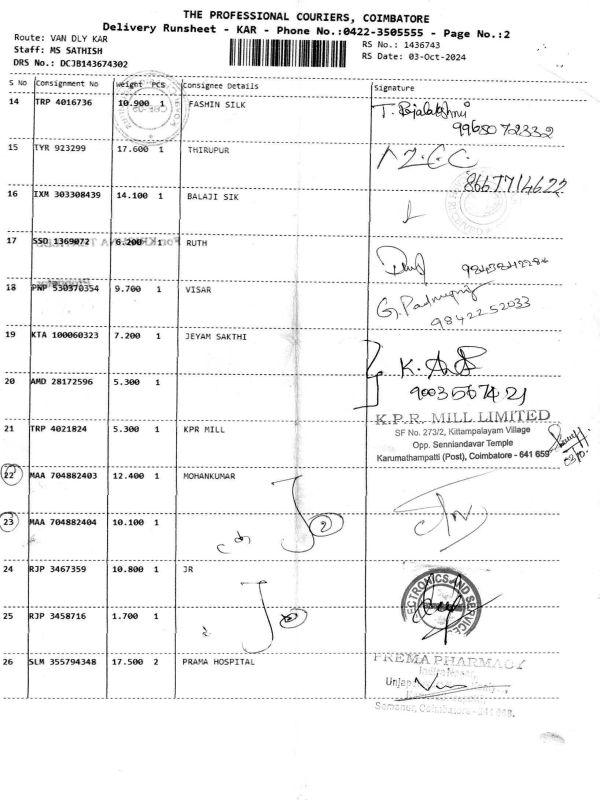 THE PROFESSIONAL COURIERS, COIMBATORE
Delivery Runsheet - KAR - Phone No.:0422-3505555 - Page No.:2
Route: VAN DLY KAR
RS No.: 1436743
Staff: MS SATHISH
RS Date: 03-Oct-2024
DRS No.: DCJB143674302
S No Consignment No Weight PCS Consignee Details Signature
14 TRP 4016736 10.900 1 FASHIN SILK
T. Rajalakshmi
9965072332
15 TYR 923299 17.600 1 THIRUPUR
8667714622
16 IXM 303308439 14.100 1 BALAJI SIK
17 SSD 1369072 6.200 1 RUTH
18 PNP 530370354 9.700 1 VISAR
G. Padmapriy
9842252033
19 KTA 100060323 7.200 1 JEYAM SAKTHI
K. 
20 AMD 28172596 5.300 1
9003567421
21 TRP 4021824 5.300 1 KPR MILL
K.P.R. MILL LIMITED
SF No. 273/2, Kittampalayam Village
Opp. Senniandavar Temple
Karumathampatti (Post), Coimbatore - 641 659
22 MAA 704882403 12.400 1 MOHANKUMAR
23 MAA 704882404 10.100 1
2
24 RJP 3467359 10.800 1 JR
ECTRONICS AND SERVICE
25 RJP 3458716 1.700 1
26 SLM 355794348 17.500 2 PRAMA HOSPITAL
PREMA PHARMACY